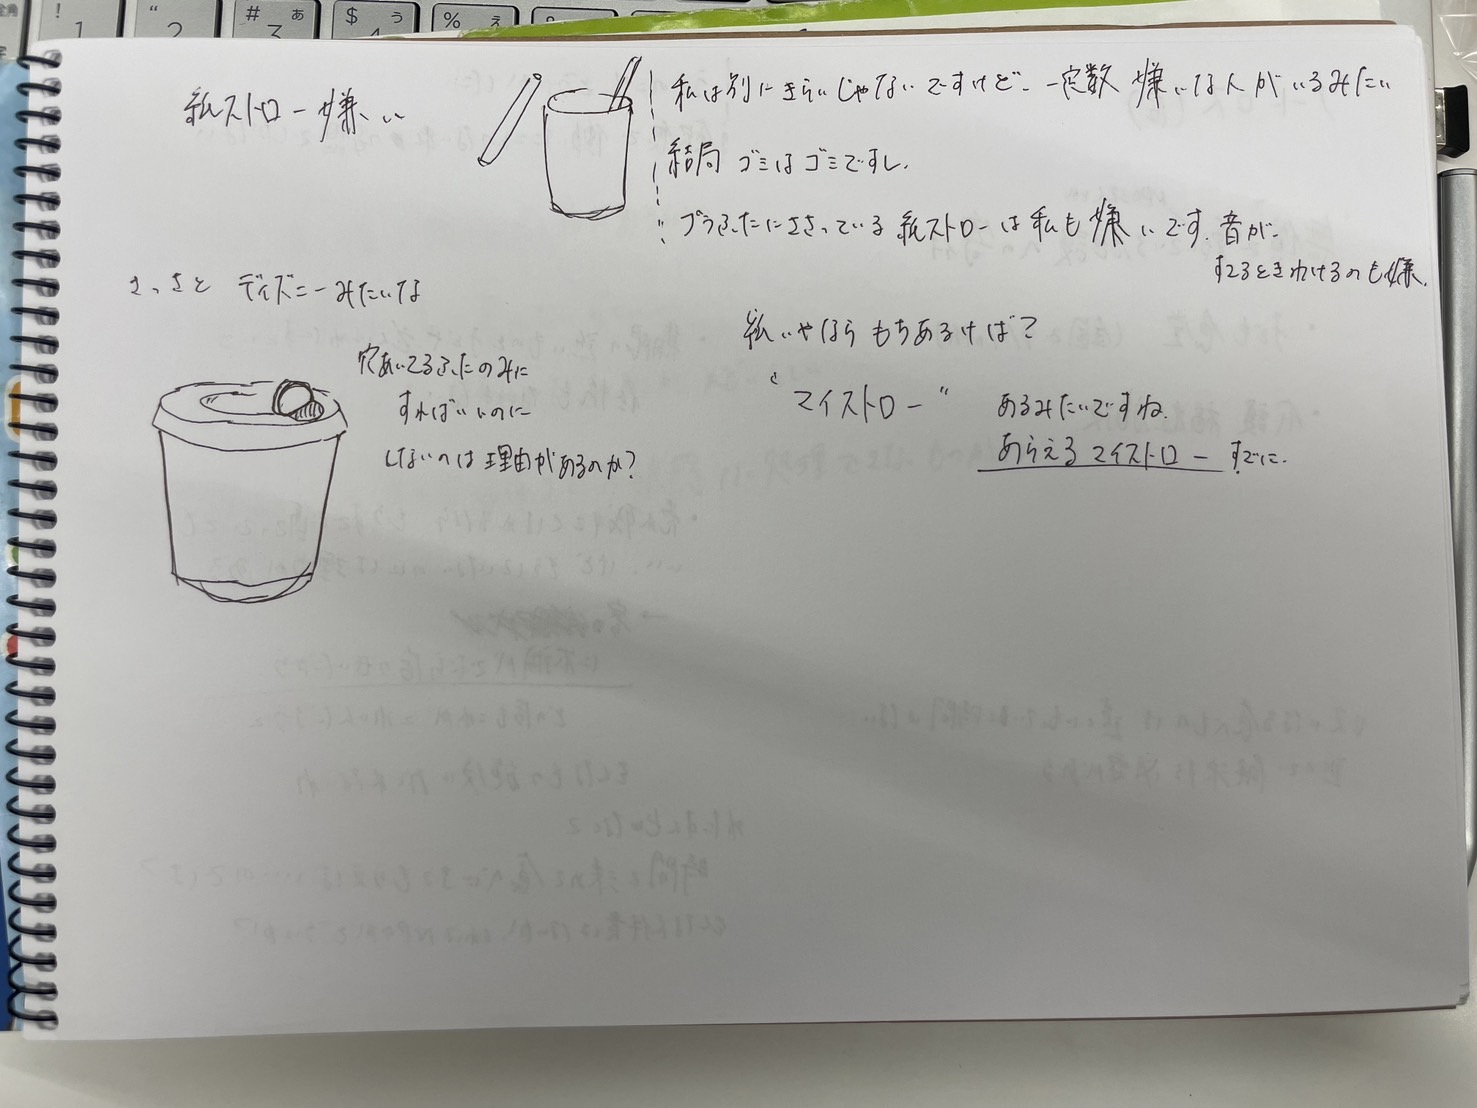 紙ストロー嫌い
私は別にきらいじゃないですけど、一定数 嫌いな人がいるみたい
結局 ゴミはゴミですし、
プラふたにささっている 紙ストローは私も嫌いです。音が、
すてるときわけるのも嫌、
さっさと ディズニーみたいな
穴あいてるふたのみに
すればいいのに
しないのは理由があるのか?
紙いやならもちあるけば?
“マイストロー” あるみたいですね、
あらえるマイストロー すでに、